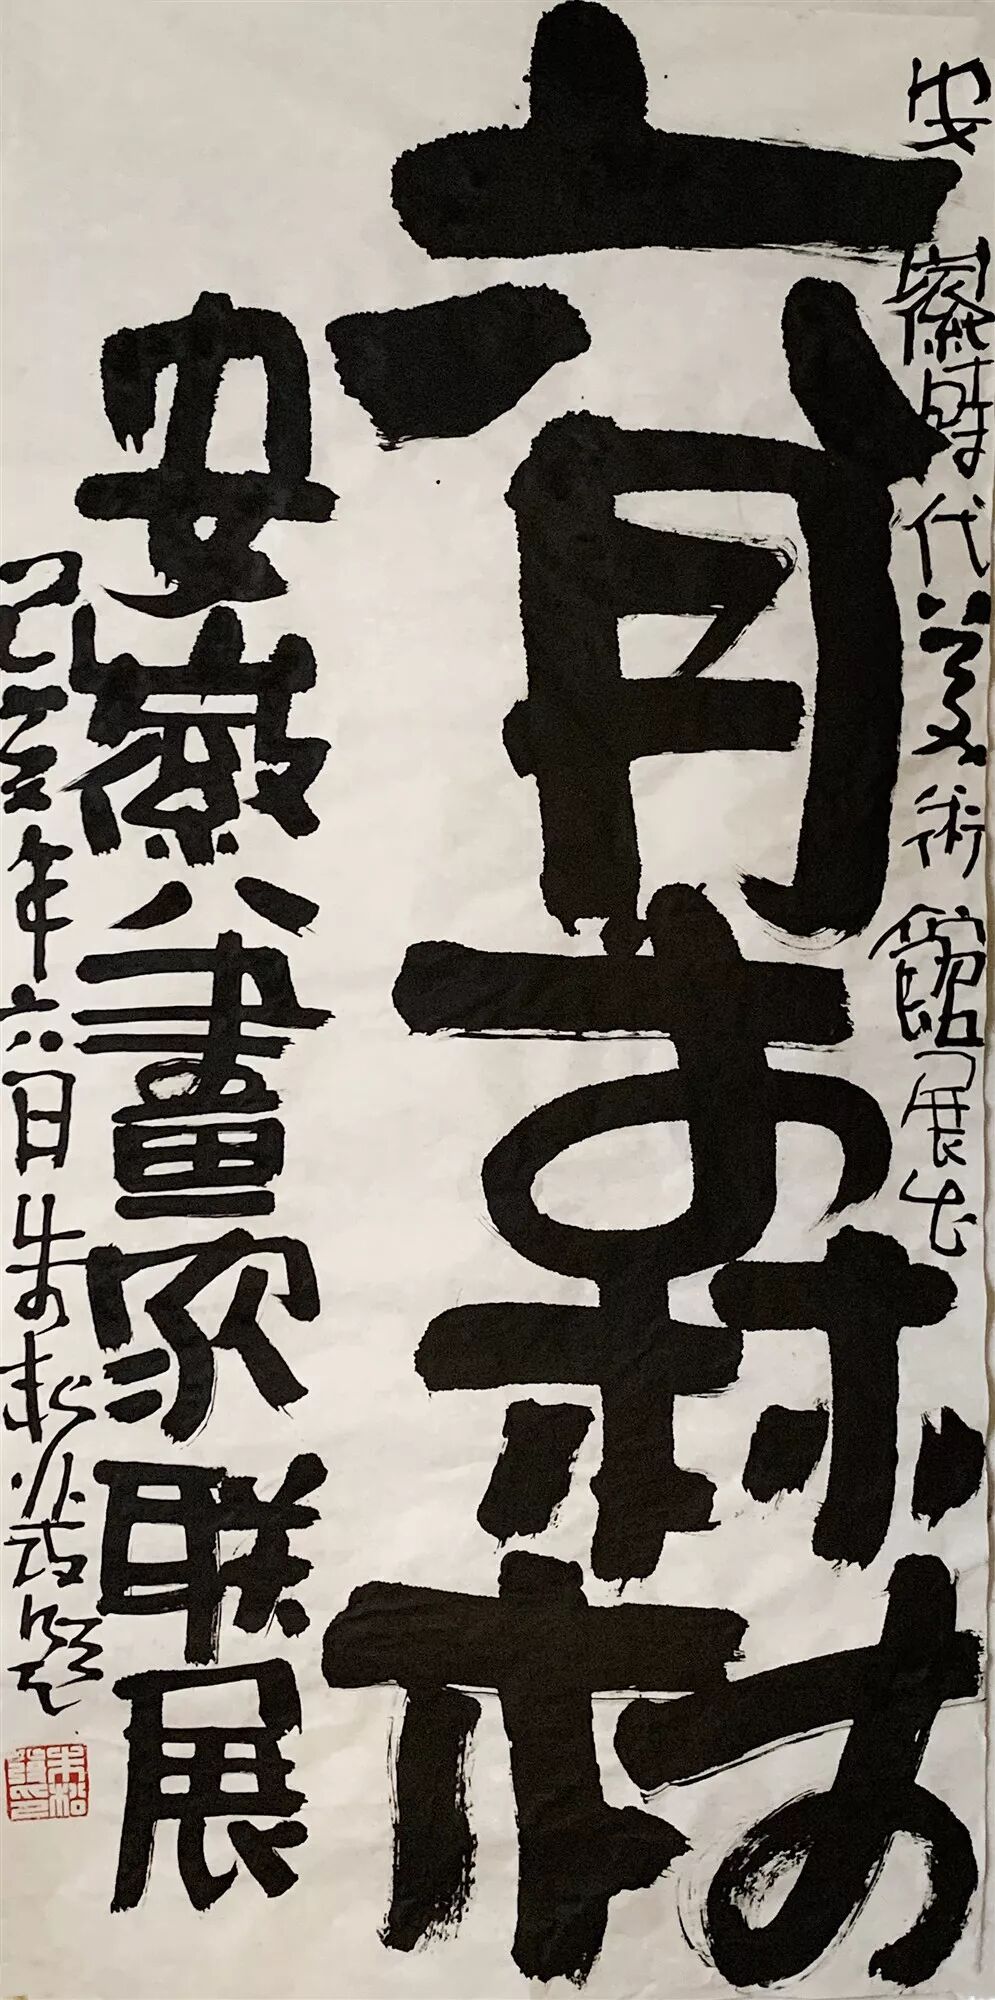 安徽時代美術館展出
六月森林
安徽八畫家联展
己亥年六日朱松發題
朱松發印